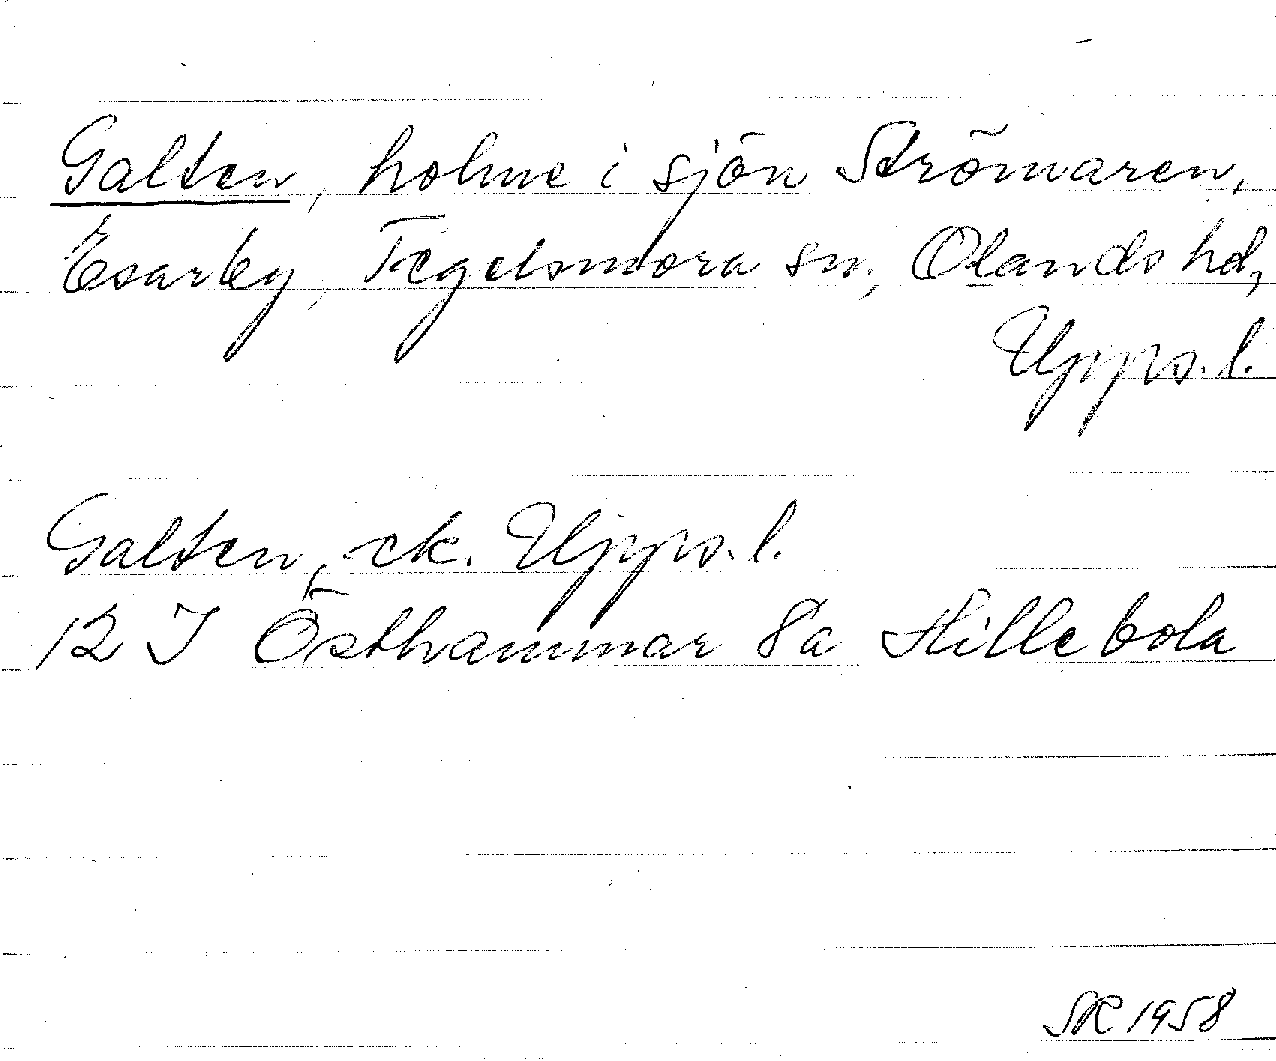 Galten, holme i sjön Strömaren,
Esarby, Tegelsmora sn, Olands hd,
Upps. l.
Galten, ek. Upps. l.
12 I Östhammar 8a Hillebola
SR 1958